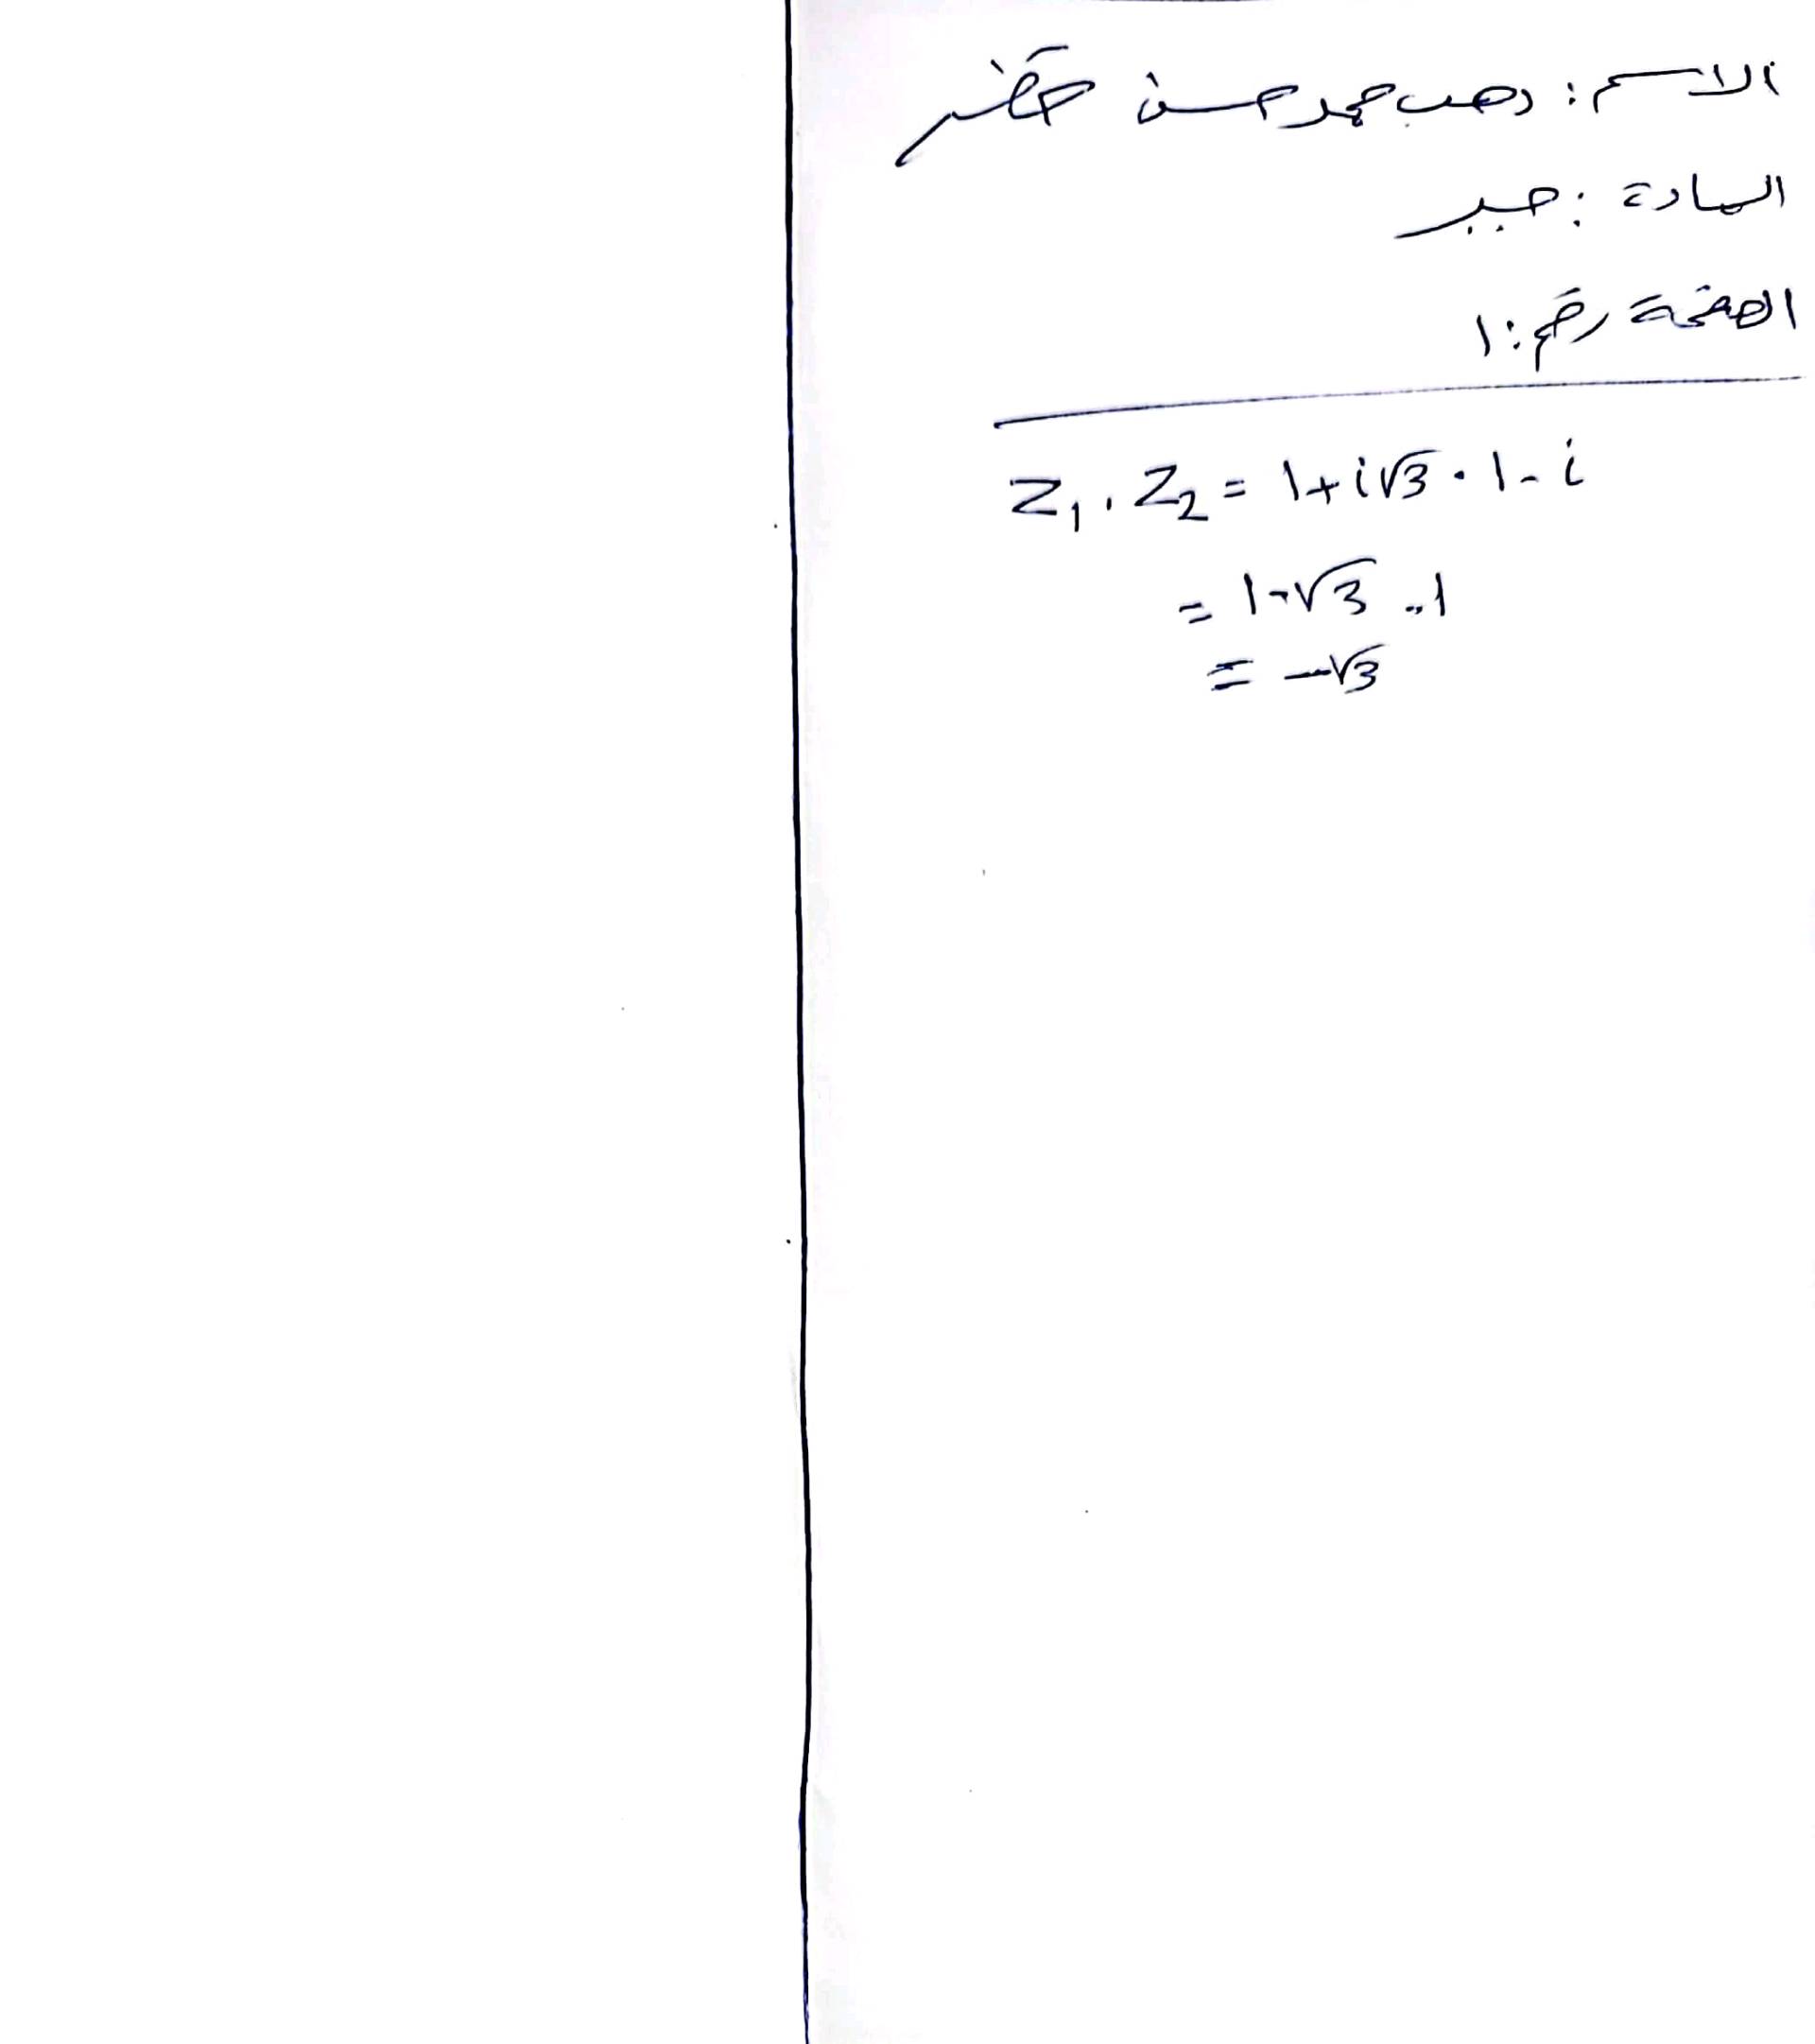 الاسم: وهب محمد حسن خضر
المادة: جبر
الصفحة رقم: ١
Z₁ . Z₂ = 1+i√3 . 1 - i
= 1-√3 -1
= -√3